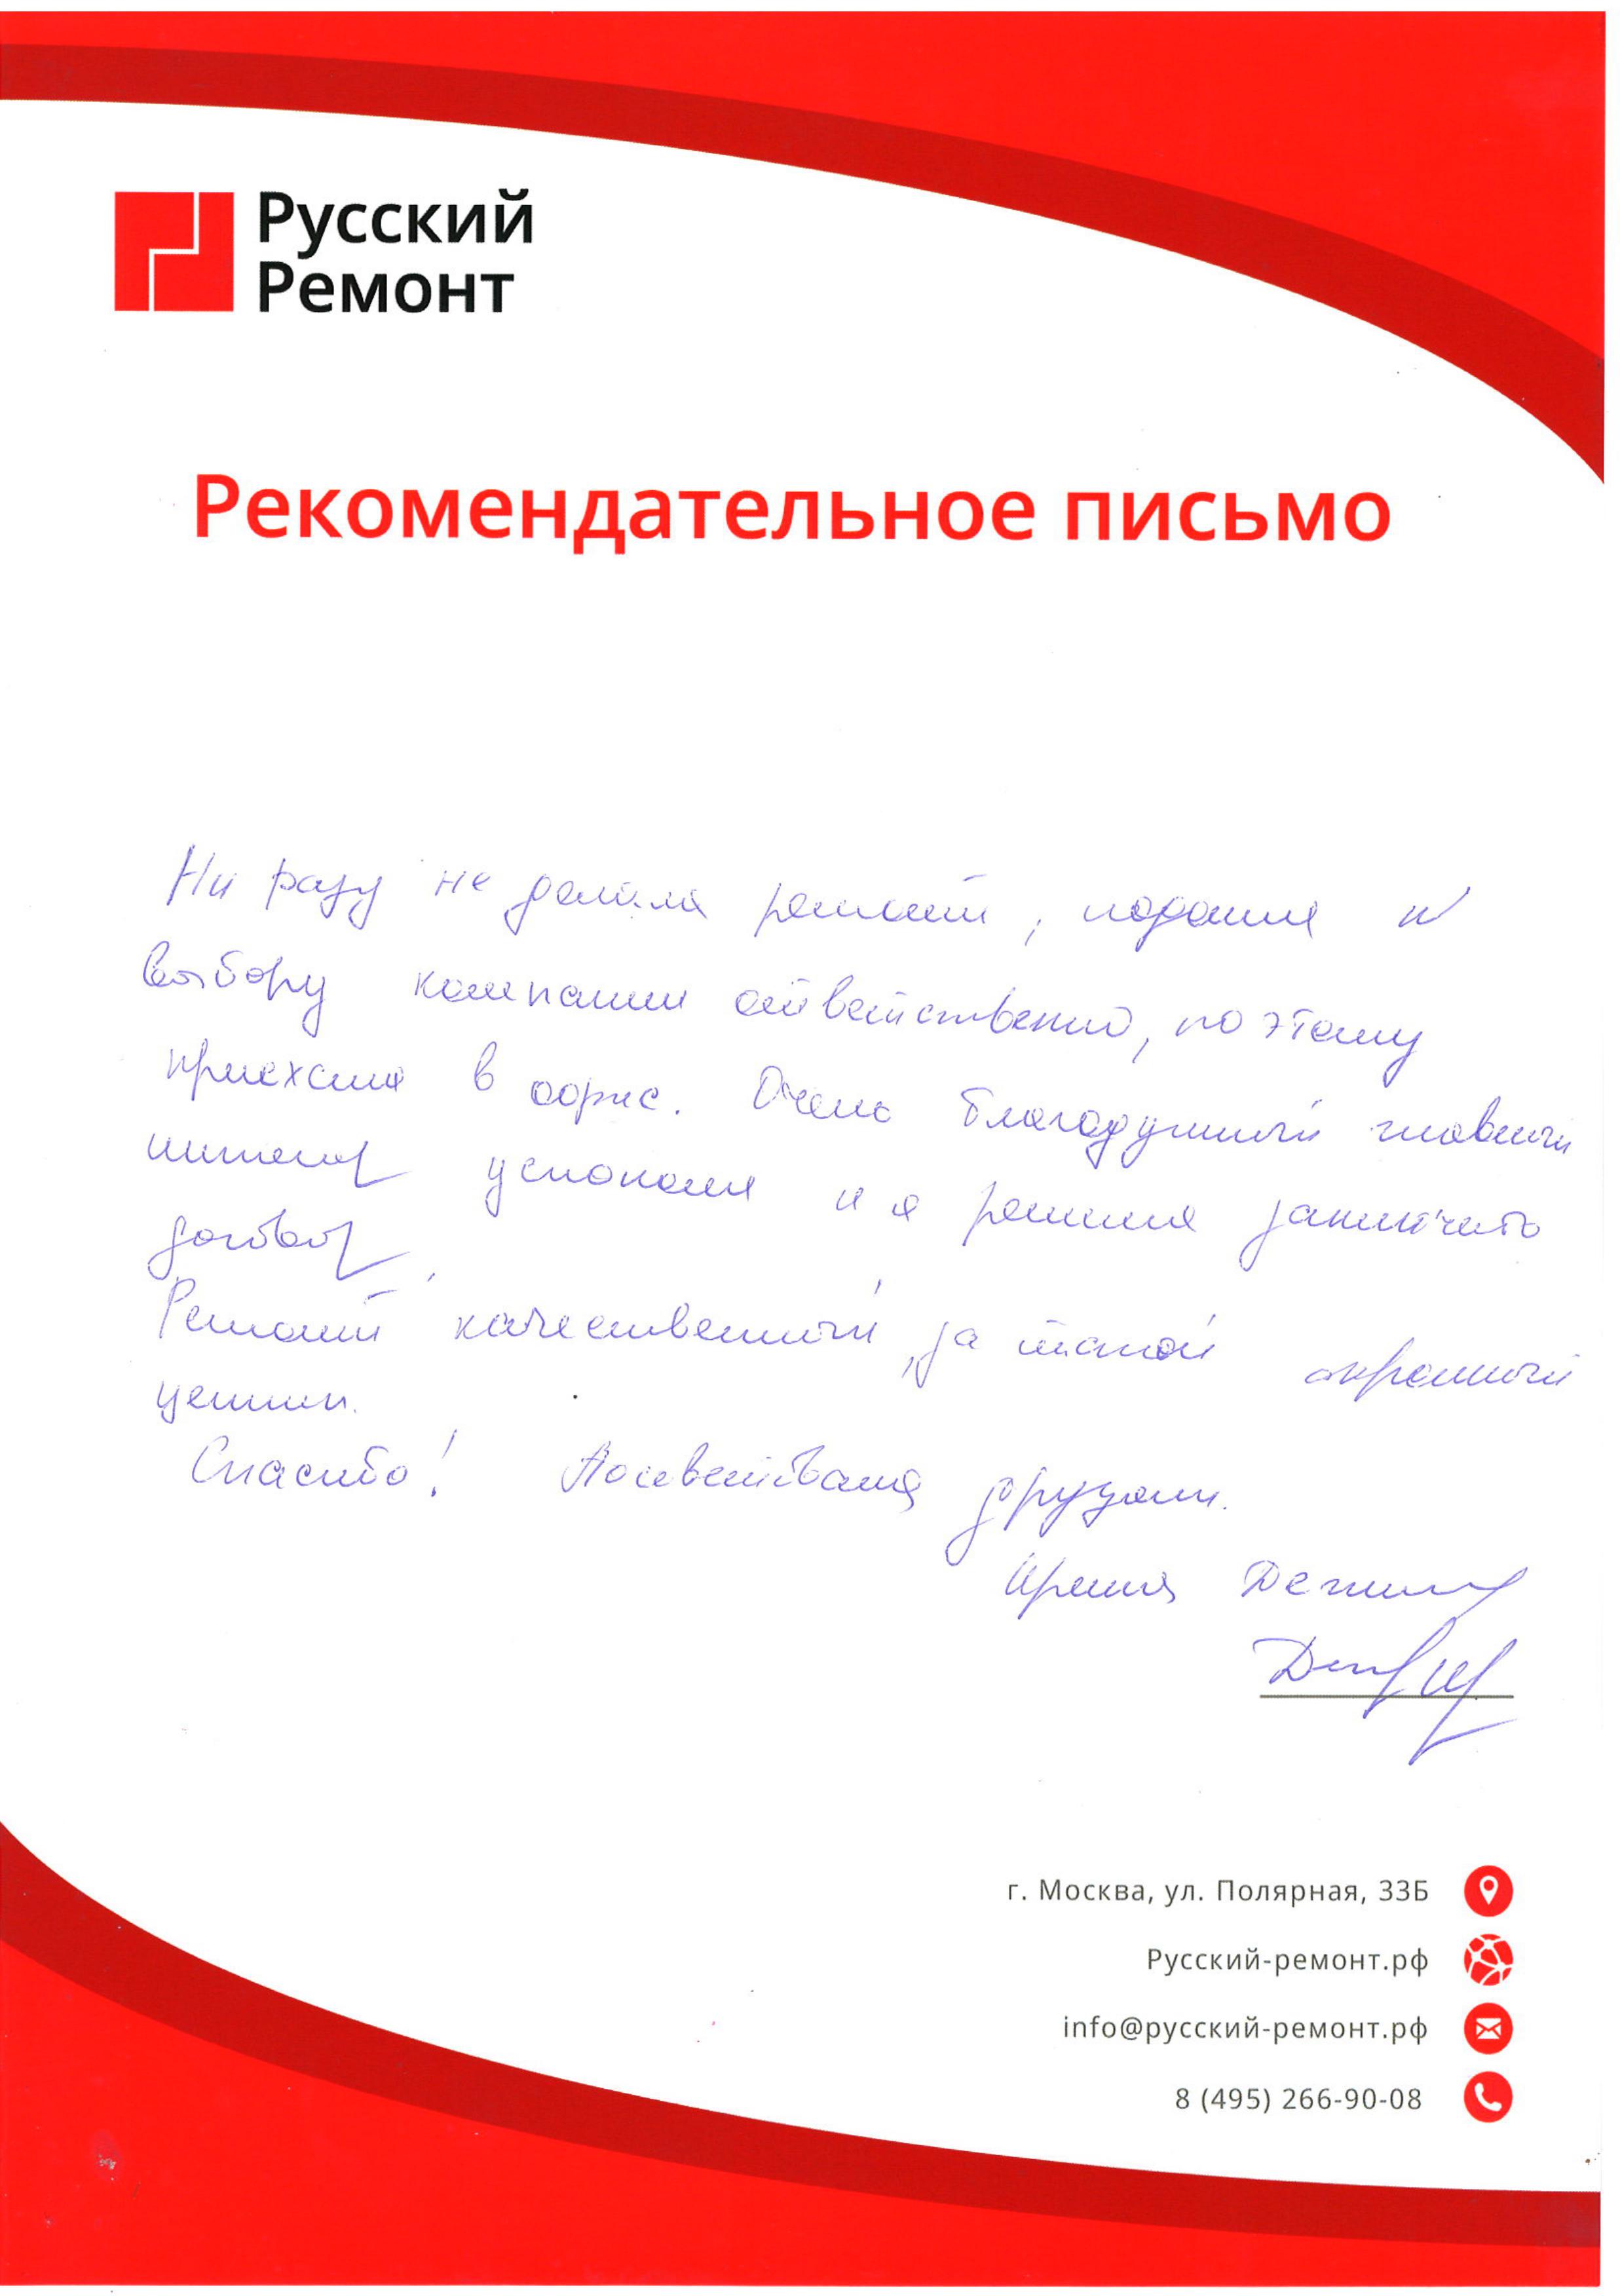 Русский
Ремонт
Рекомендательное письмо
Ни разу не делала ремонт, подошла к
выбору компании ответственно, поэтому
приехала в офис. Очень благодушный главный
инженер успокоил и я решила заключить
договор.
Ремонт качественный, за такой скромный
ценник.
Спасибо! Посоветовала друзьям.
Ирина
г. Москва, ул. Полярная, 33Б
Русский-ремонт.рф
info@русский-ремонт.рф
8 (495) 266-90-08